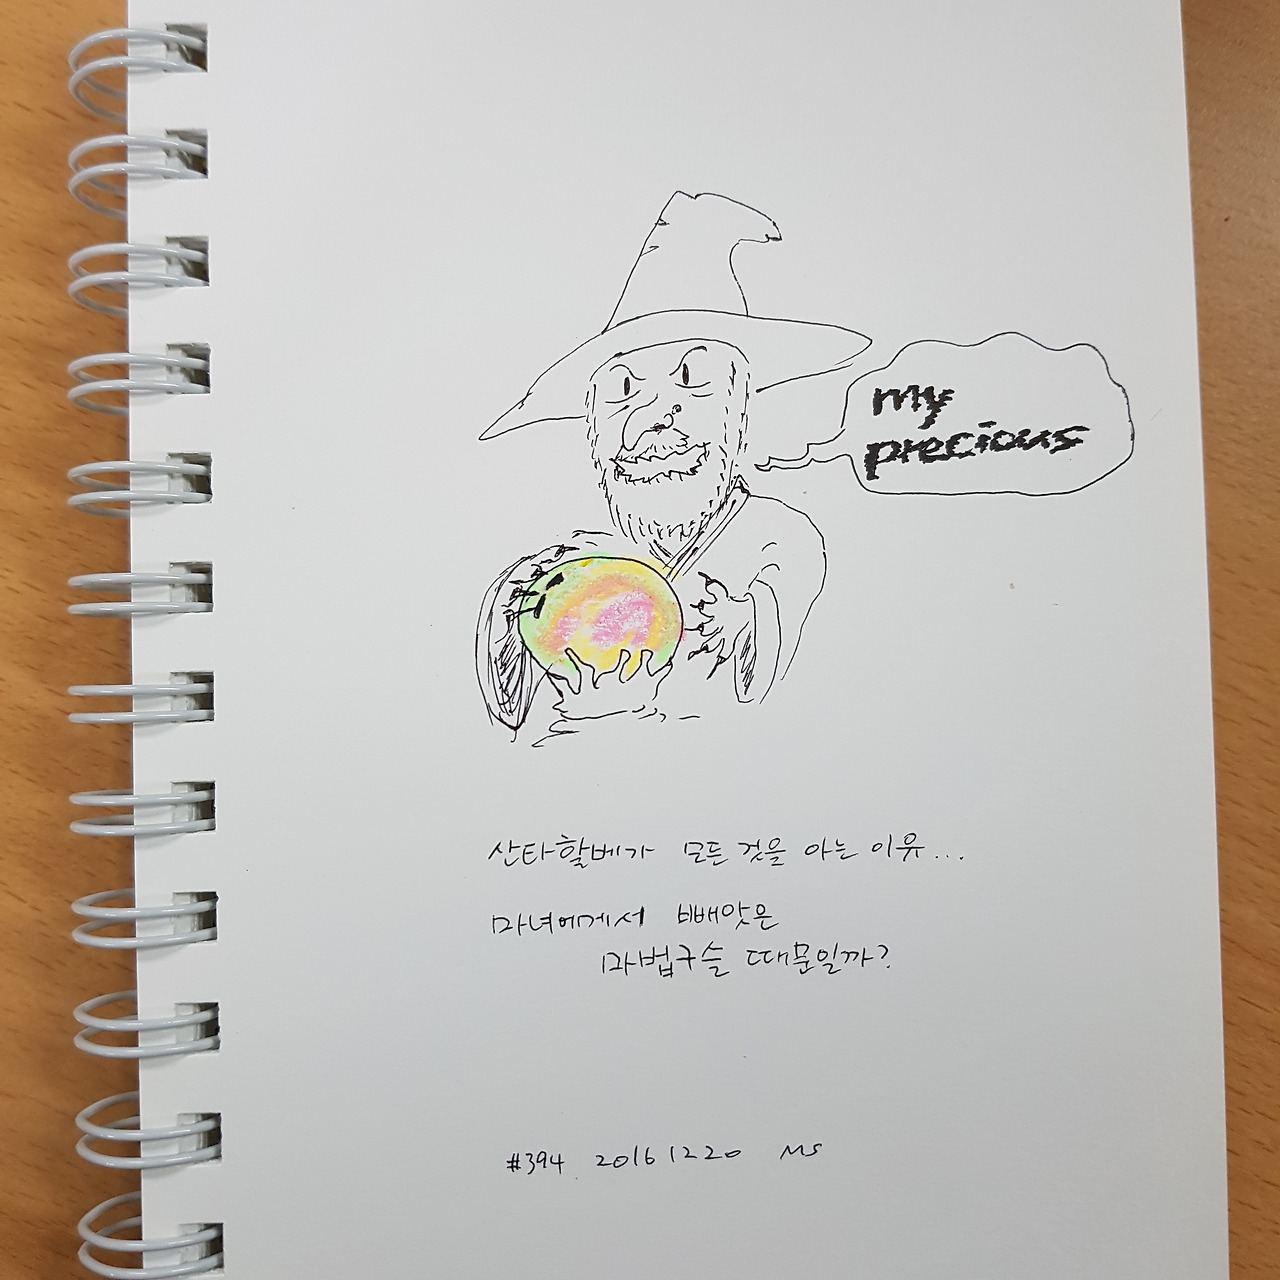 my
precious
산타할베가 모든 것을 아는 이유...
마녀에게서 빼앗은
마법구슬 때문일까?
#394 20161220 MS